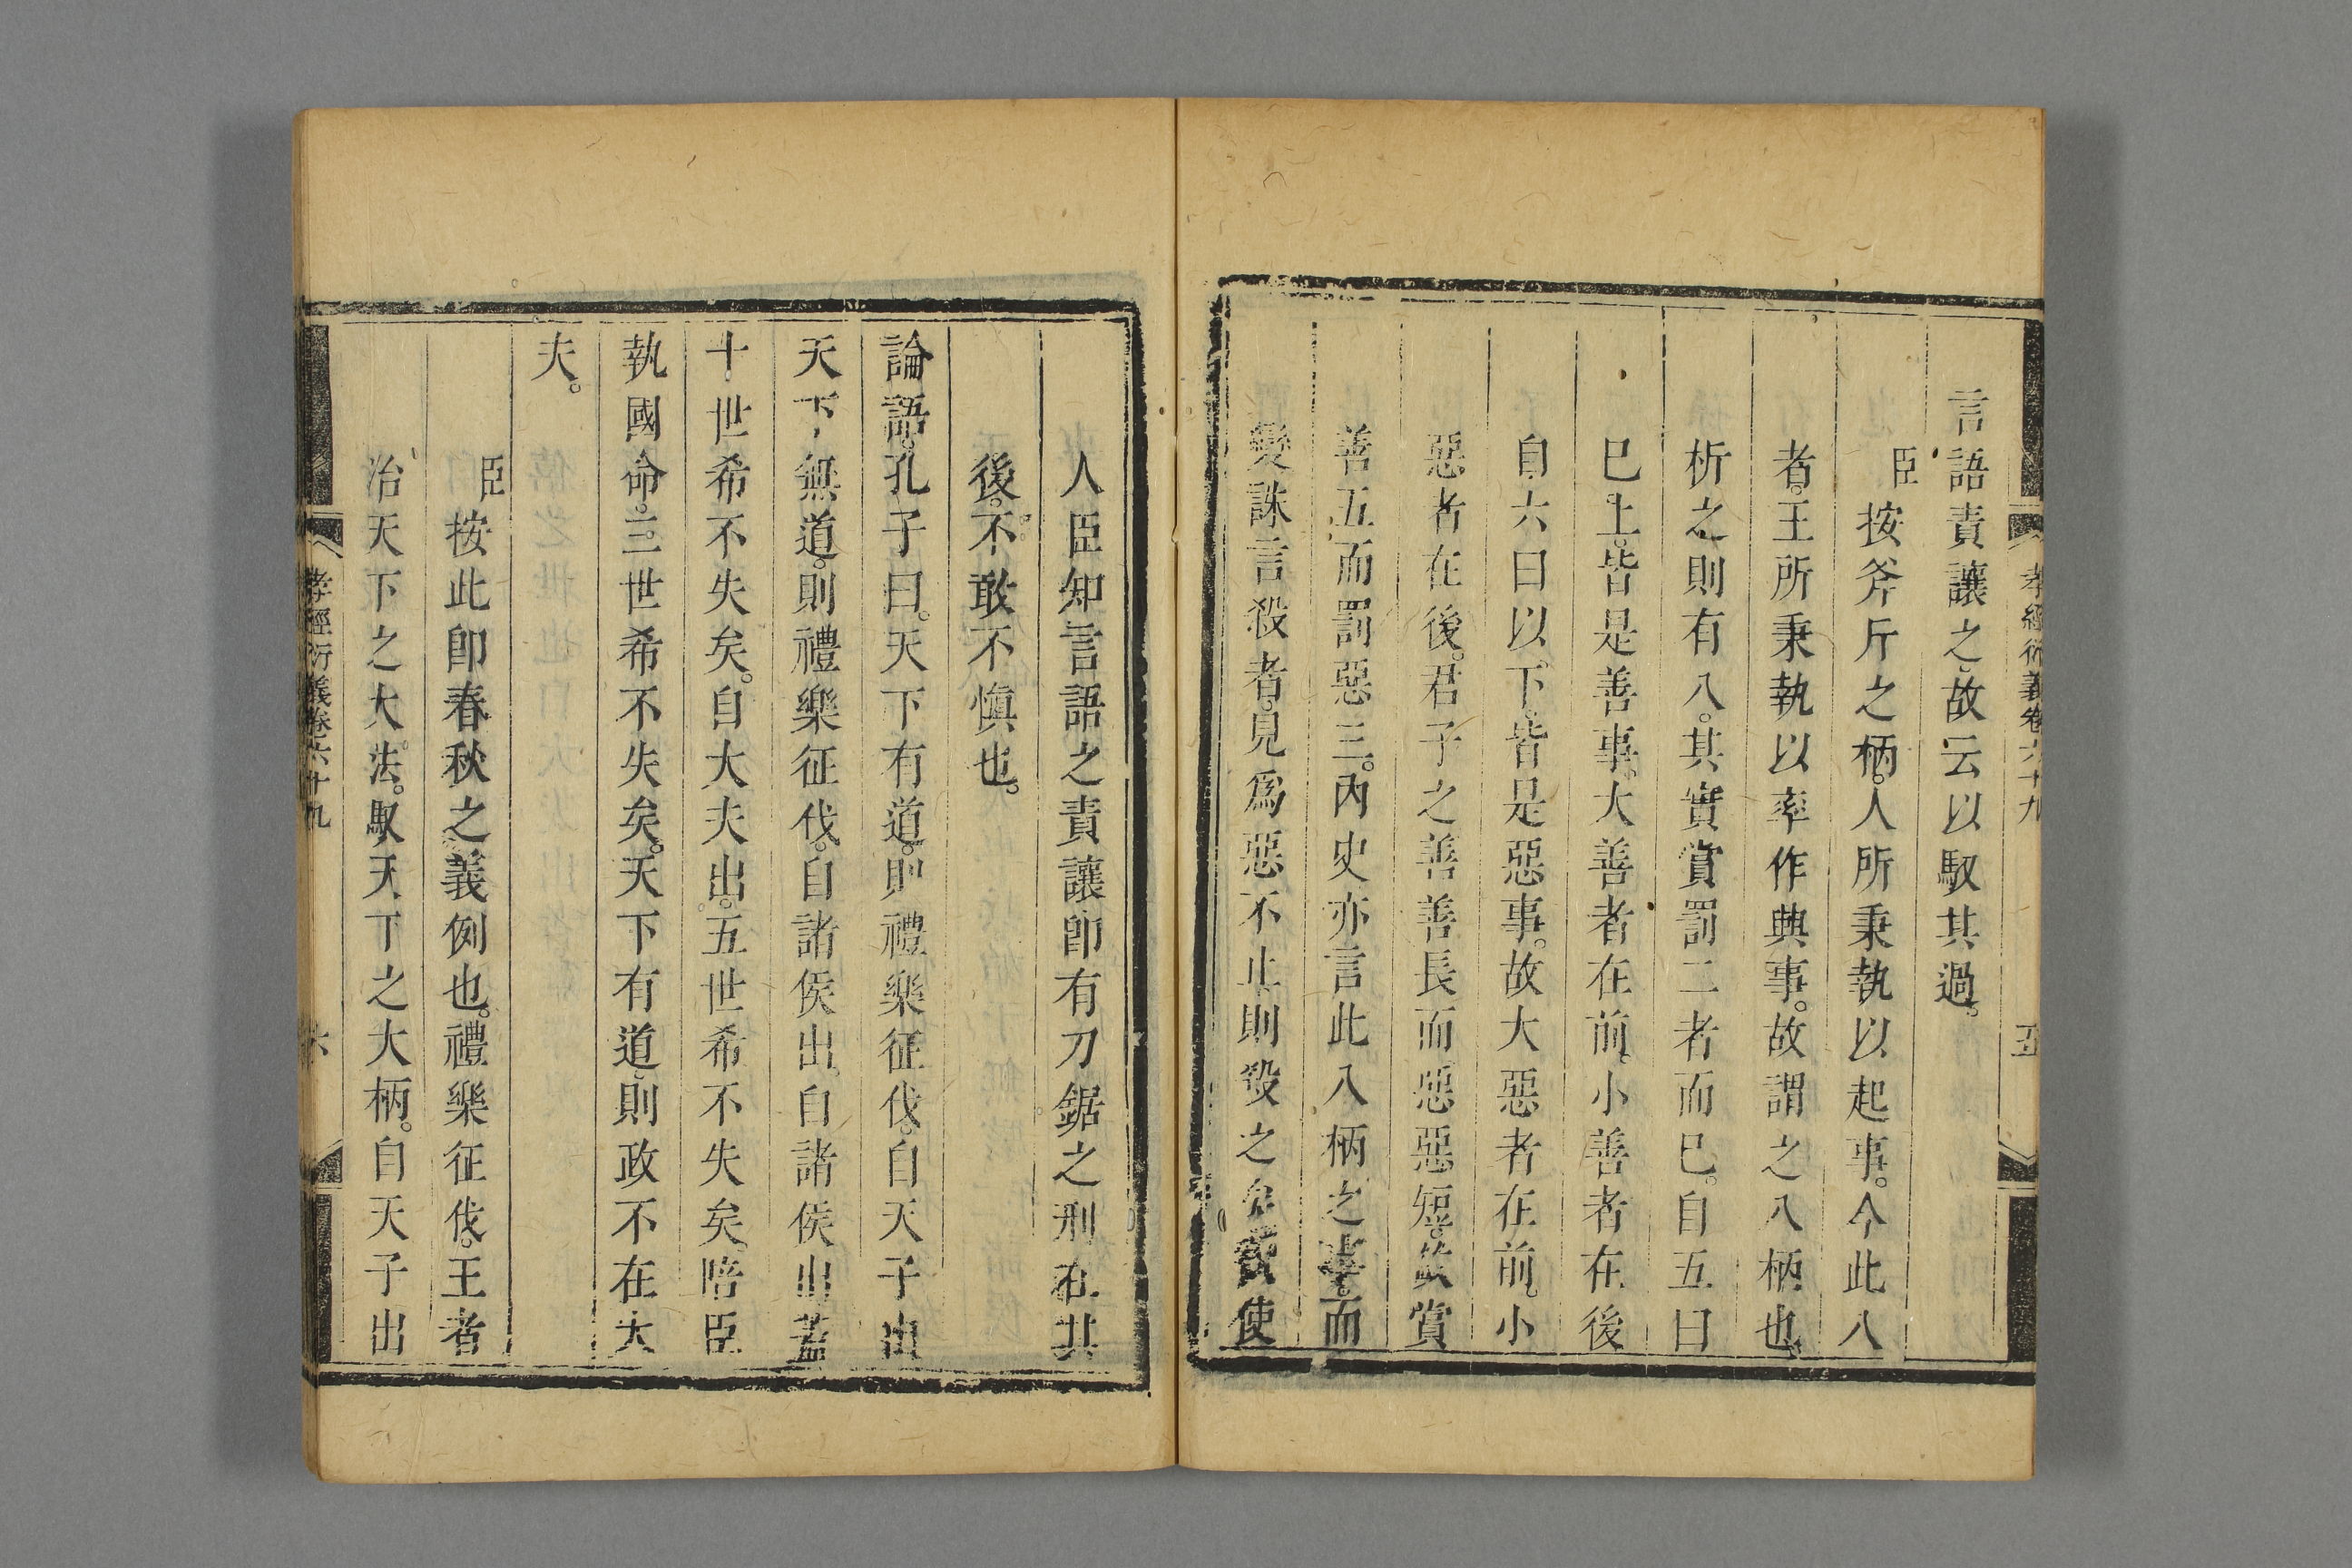 孝經衍義卷六十九 五
言語責讓之。故云以馭其過。
臣按斧斤之柄。人所秉執以起事。今此八
者。王所秉執以率作典事。故謂之八柄也。
析之則有八。其實賞罰二者而已。自五曰
已上。皆是善事。大善者在前。小善者在後
自六曰以下。皆是惡事。故大惡者在前。小
惡者在後。君子之善善長而惡惡短。故賞
善五而罰惡三。內史亦言此八柄之事。而
變誅言殺者。見為惡不止則殺之矣。使
人臣知言語之責讓卽有刀鋸之刑在其
後。不敢不慎也。
論語。孔子曰。天下有道。則禮樂征伐。自天子出
天下無道。則禮樂征伐。自諸侯出。自諸侯出蓋
十世希不失矣。自大夫出。五世希不失矣。陪臣
執國命。三世希不失矣。天下有道。則政不在大
夫。
臣按此卽春秋之義例也。禮樂征伐。王者
治天下之大法。馭天下之大柄。自天子出
孝經衍義卷六十九 六